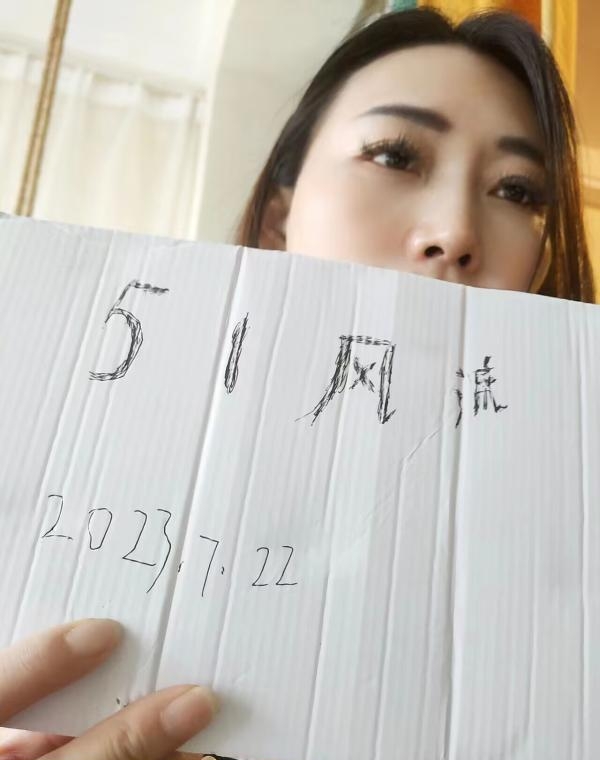 51风流
2023.7.22